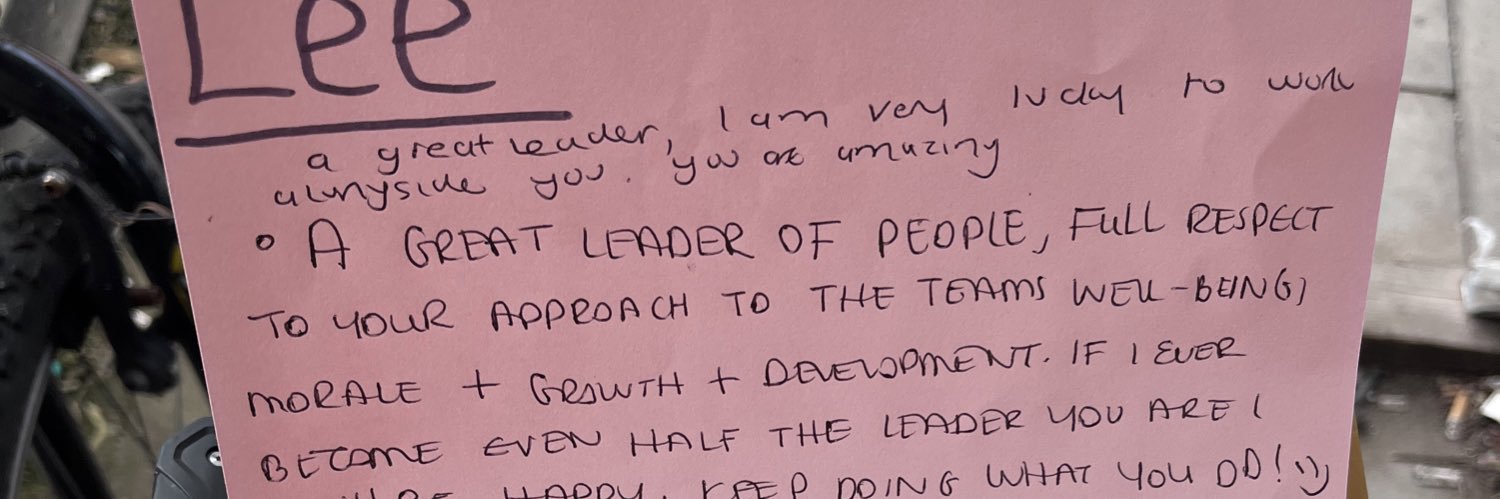 Lee
a great leader, I am very lucky to work
alongside you. you are amazing
• A GREAT LEADER OF PEOPLE, FULL RESPECT
TO YOUR APPROACH TO THE TEAMS WELL-BEING,
MORALE + GROWTH + DEVELOPMENT. IF I EVER
BECOME EVEN HALF THE LEADER YOU ARE I
HAPPY. KEEP DOING WHAT YOU DO! :)